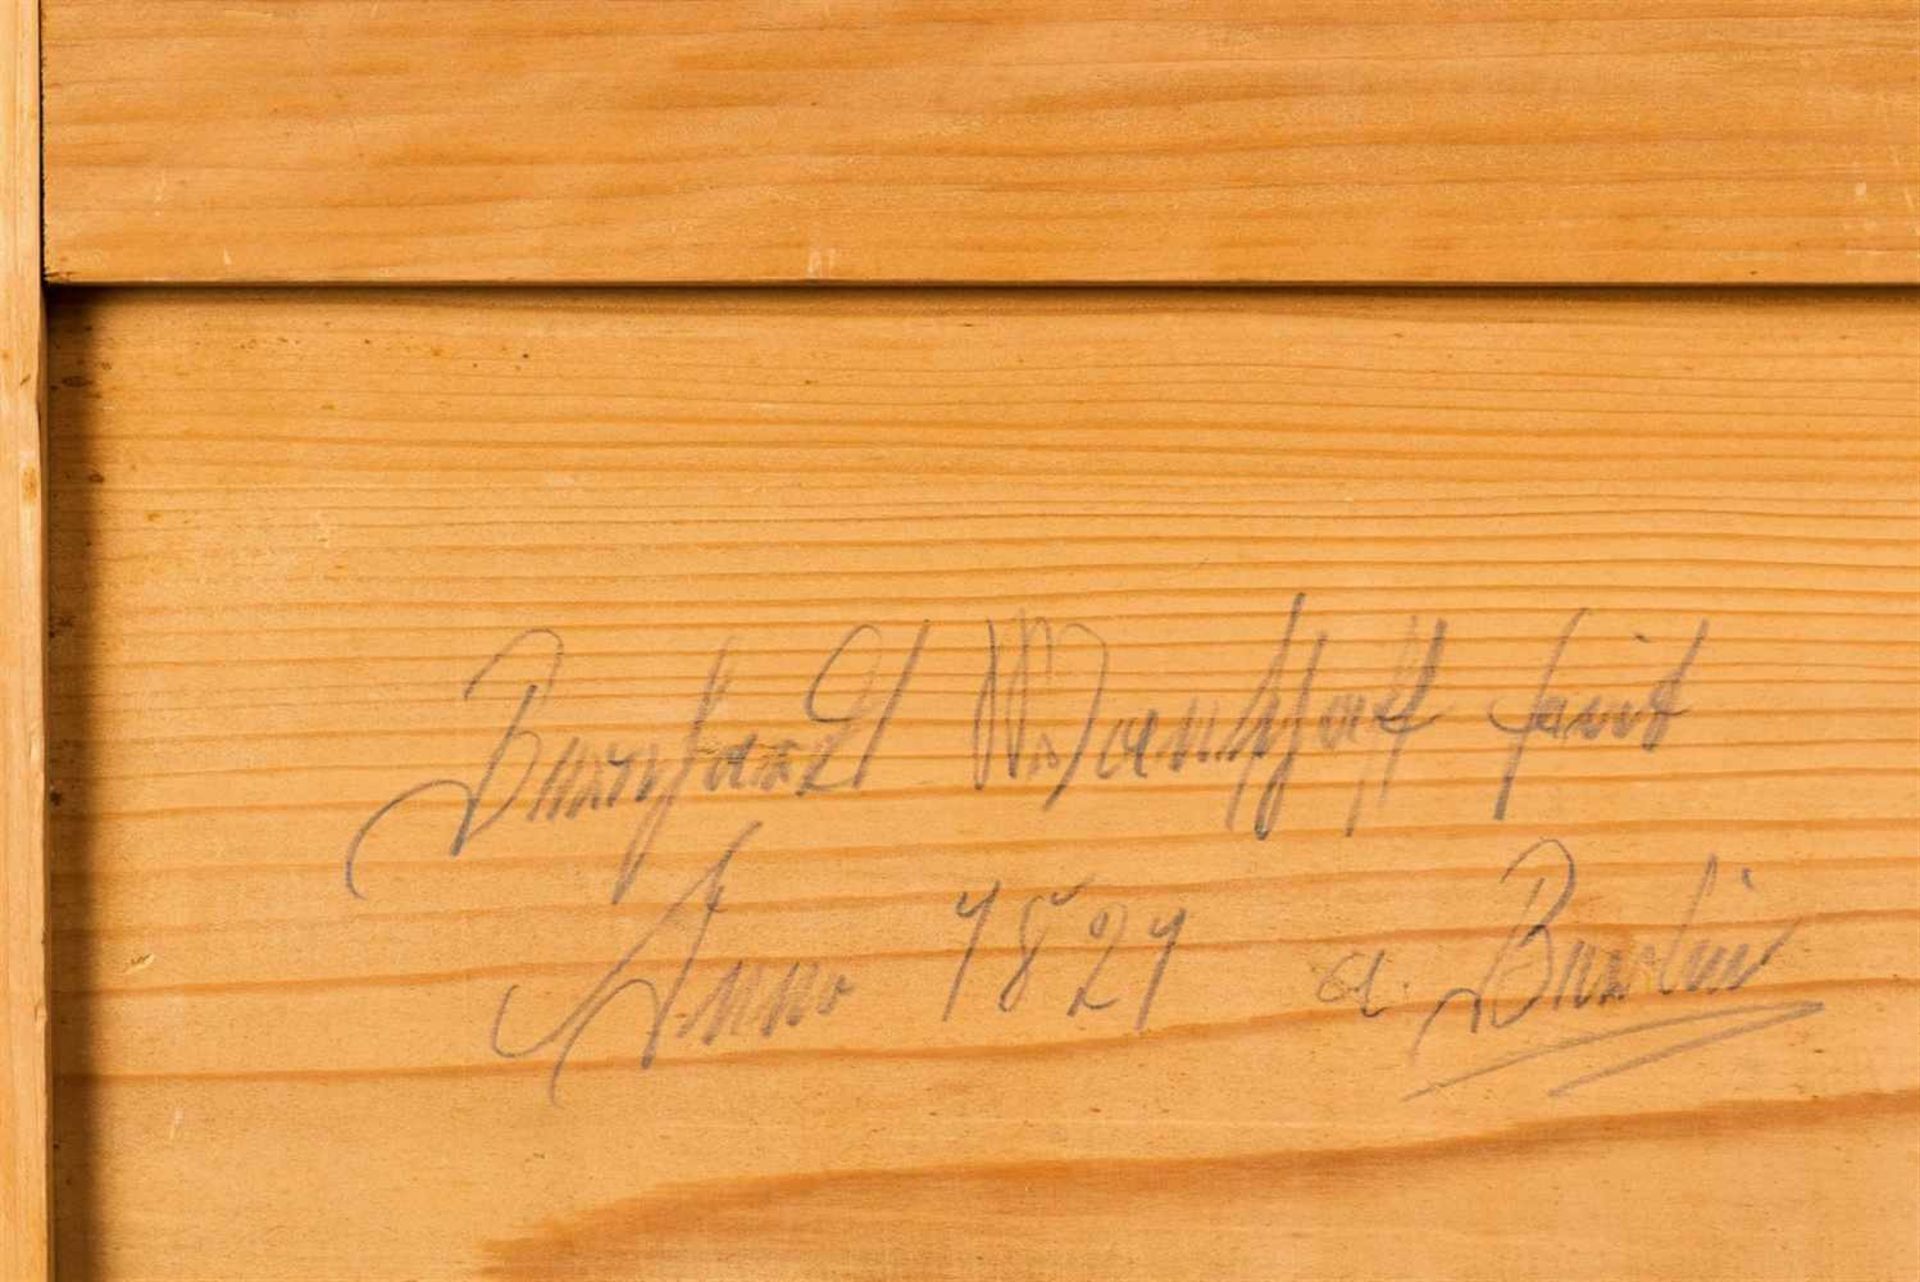 Bernhard Wanschaff fecit
Anno 1821 a. Berlin